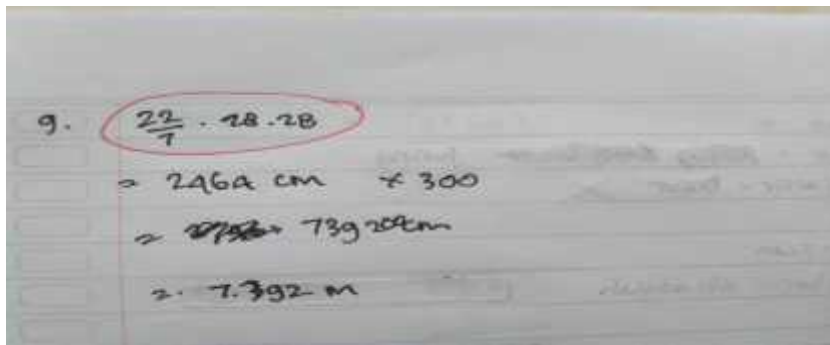 9. 22/7 . 28 . 28
= 2464 cm × 300
= 739200cm
= 7.392 m